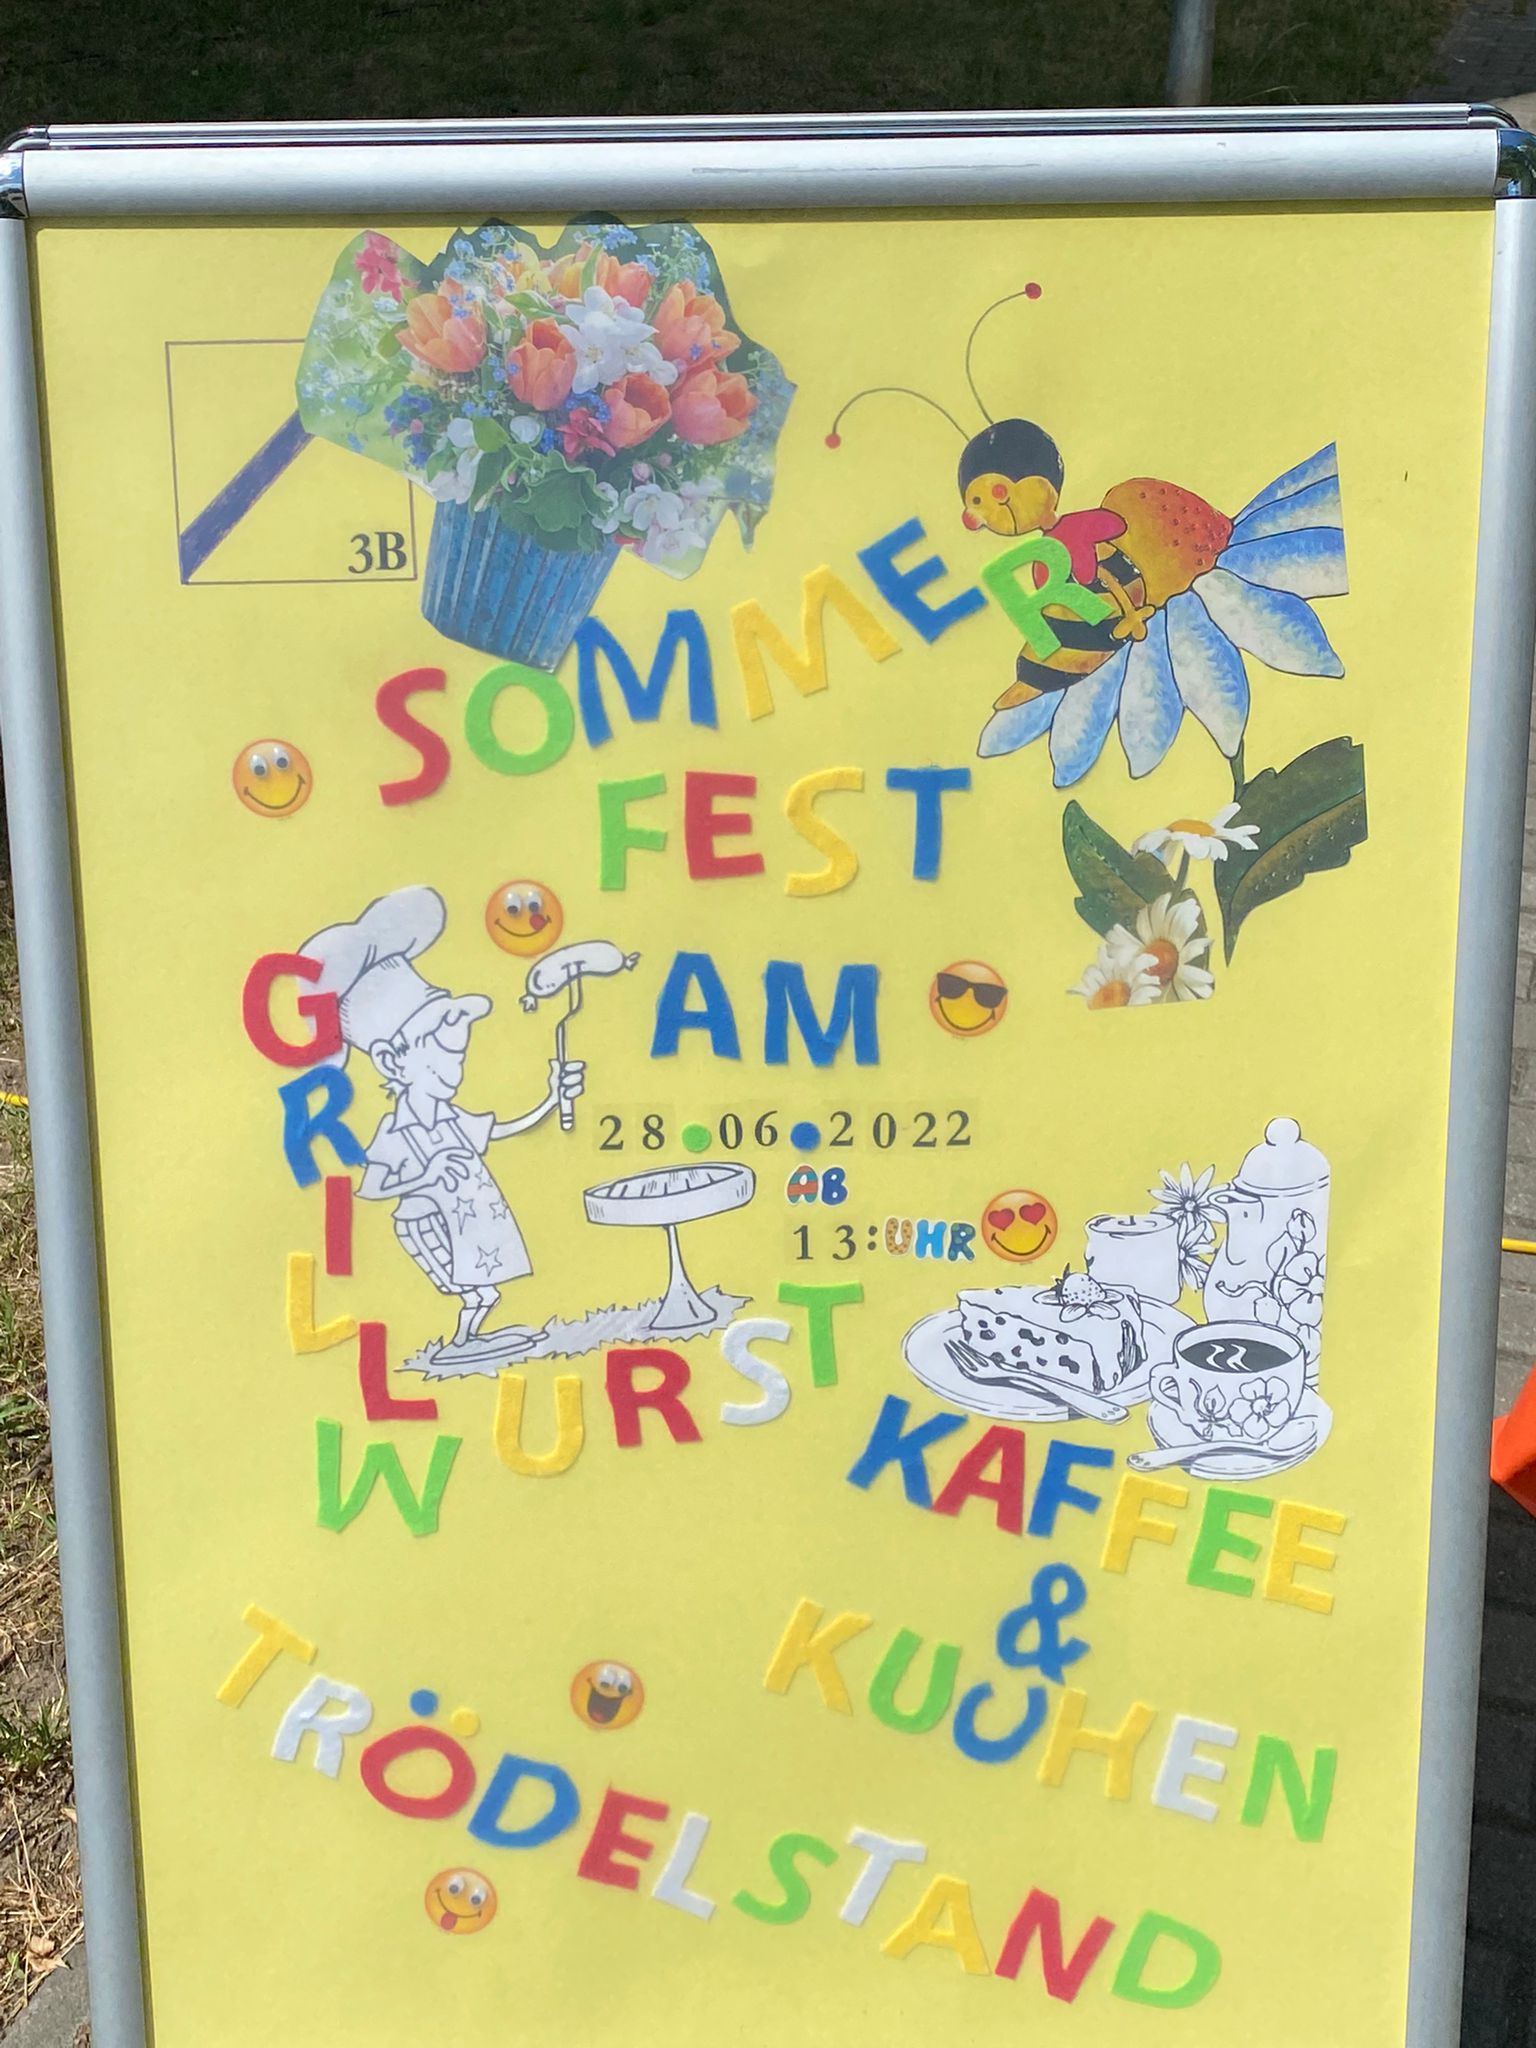 3B
SOMMER
FEST
AM
28.06.2022
AB
13:UHR
GRILL
WURST
KAFFEE
&
KUCHEN
TRÖDELSTAND